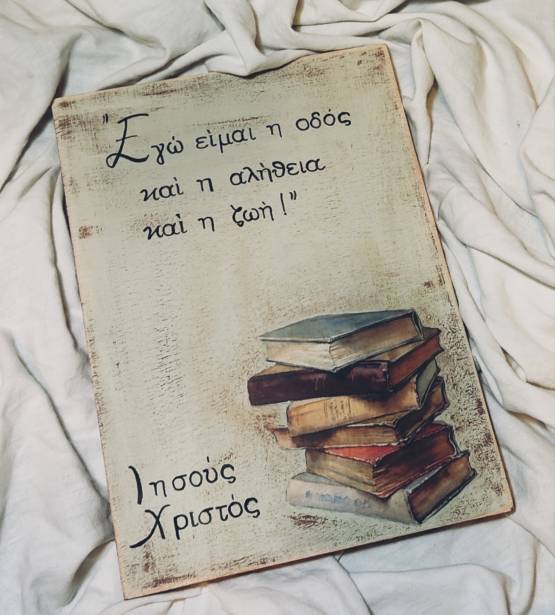 "Εγώ είμαι η οδός
καὶ η αλήθεια
καὶ η ζωή!"
Ιησούς
Χριστός